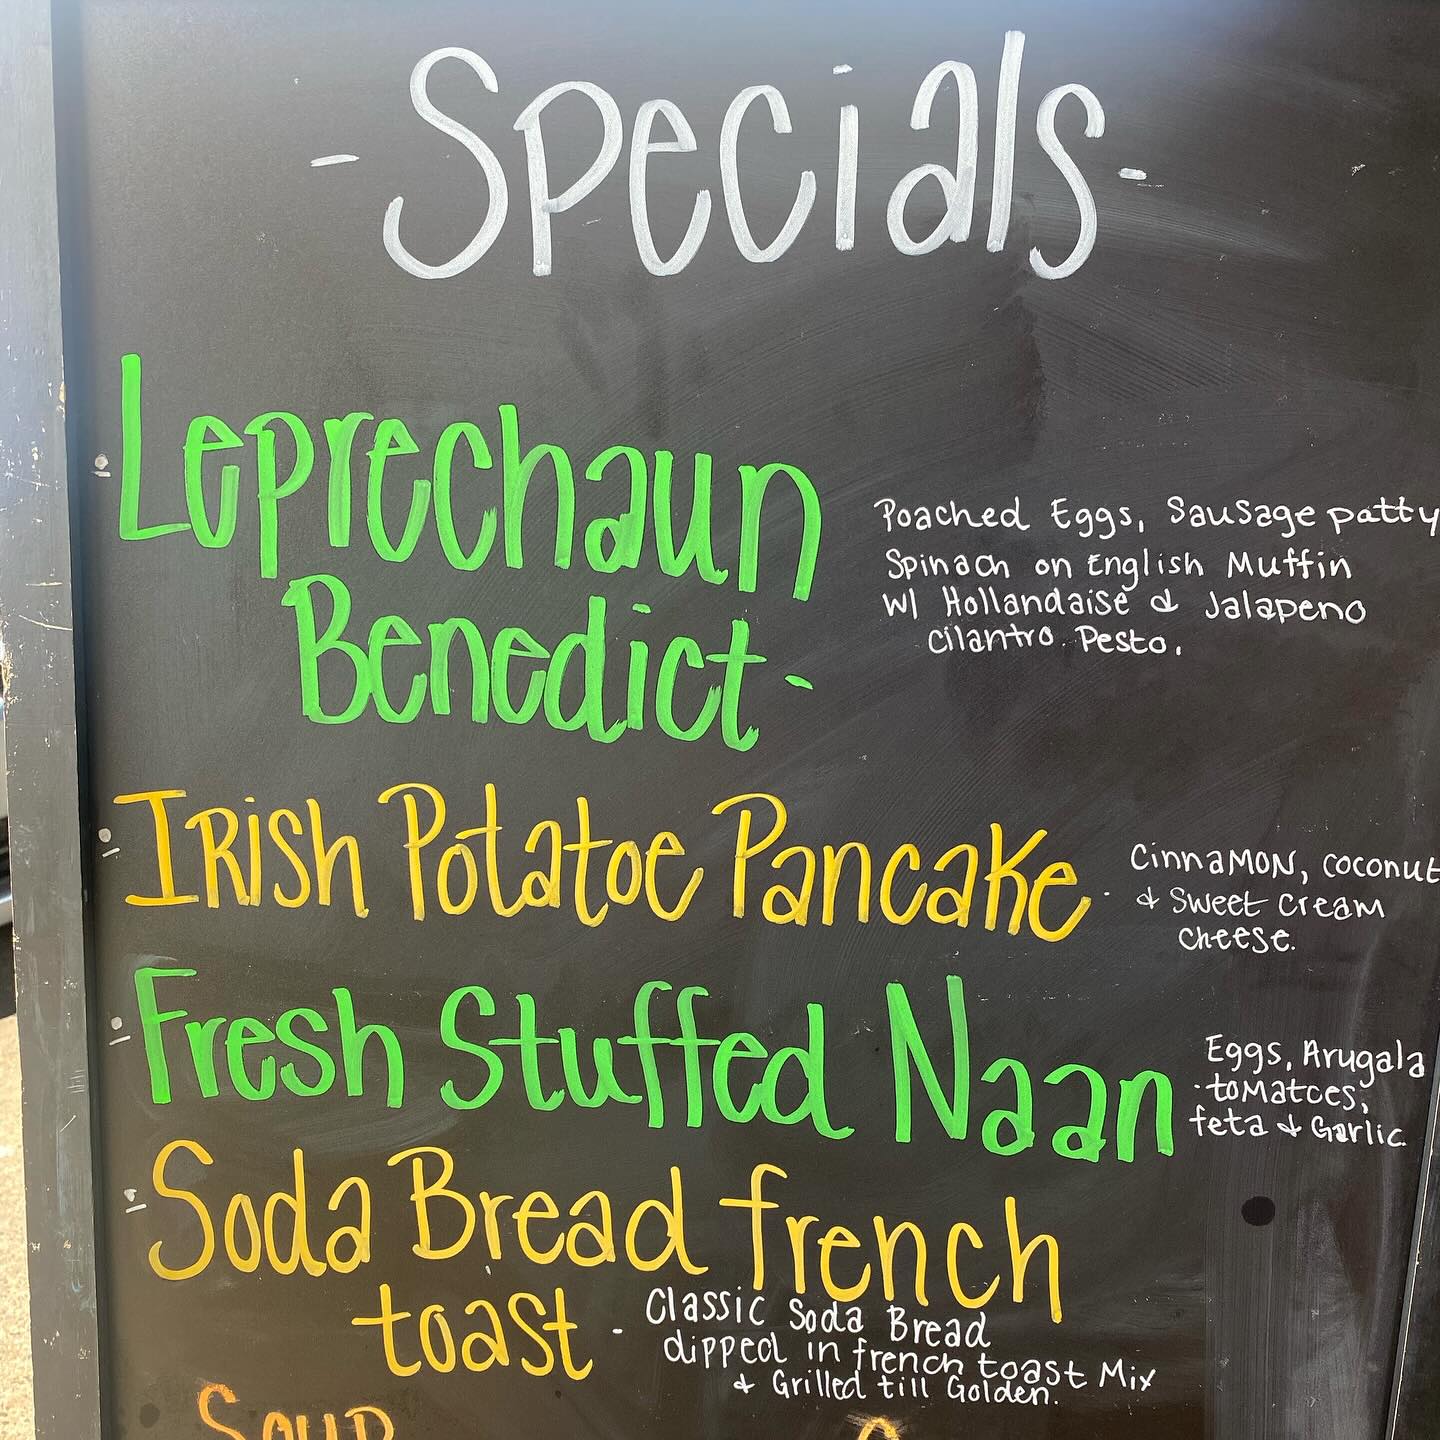 - Specials -
Leprechaun
Benedict -
Poached Eggs, Sausage patty
Spinach on English Muffin
w/ Hollandaise & Jalapeno
cilantro Pesto.
Irish Potatoe Pancake -
Cinnamon, coconut
& Sweet cream
cheese.
Fresh Stuffed Naan
Eggs, Arugala
tomatoes,
feta & Garlic
Soda Bread french
toast -
Classic Soda Bread
dipped in french toast Mix
& Grilled till Golden.
Soup